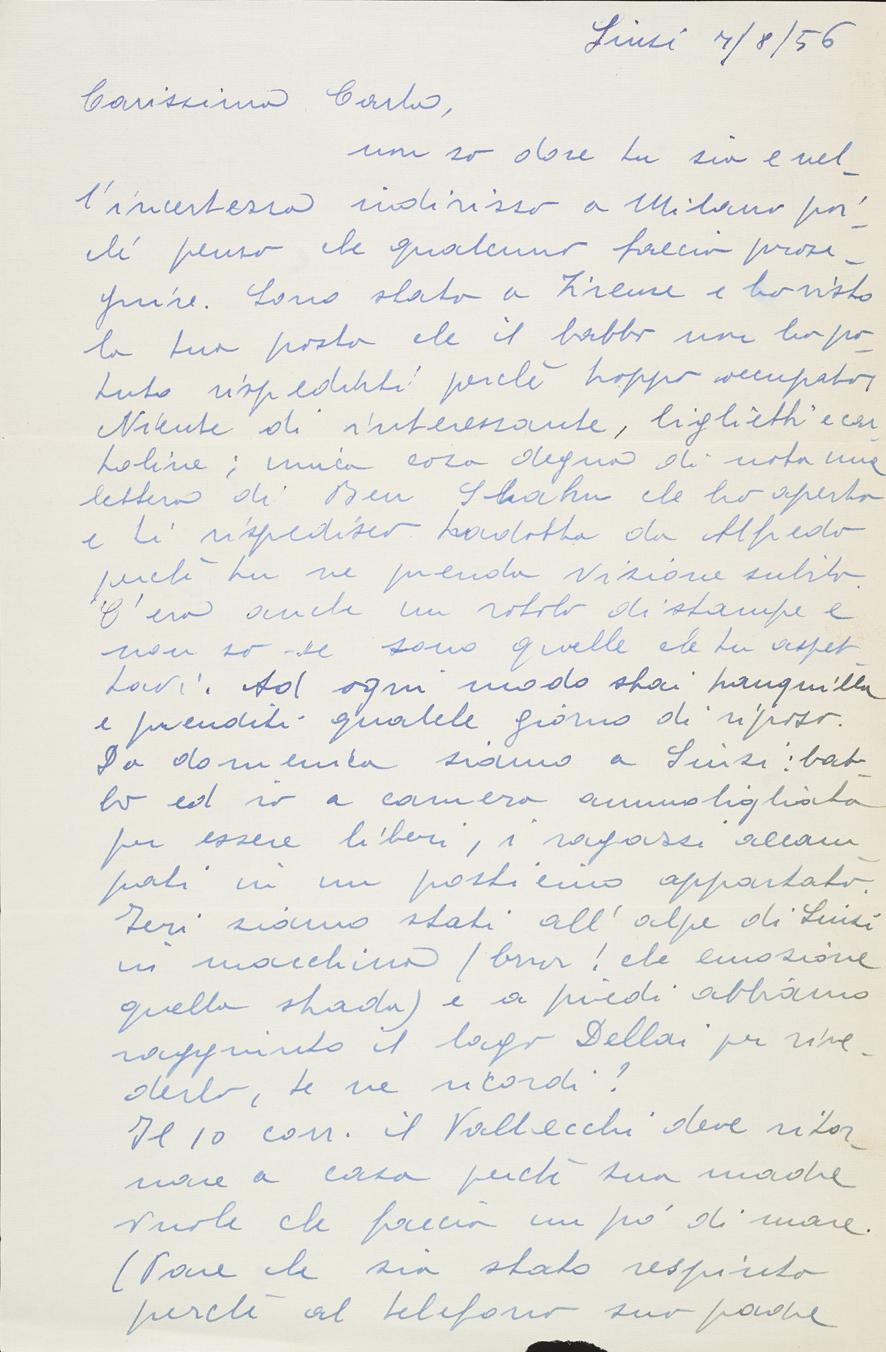 Siusi 7/8/56
Carissima Carla,
non so dove tu sia e nel-
l'incertezza indirizzo a Milano per-
chè penso che qualcuno faccia prose-
guire. Sono stato a Firenze e ho visto
la tua posta che il babbo non ha po-
tuto rispedirti perchè troppo occupato.
Niente di interessante, biglietti e car
toline; unica cosa degna di nota una
lettera di Ben Shahn che ho aperto
e ti rispedisco tradotta da Alfredo
perchè tu ne prenda visione subito.
C'era anche un rotolo di stampe e
non so se sono quelle che tu aspet
tavi. Ad ogni modo stai tranquilla
e prenditi qualche giorno di riposo.
Da domenica siamo a Siusi: bab-
bo ed io a camera ammobigliata
per essere liberi, i ragazzi accam
pati in un posticino appartato.
Ieri siamo stati all'alpe di Siusi
in macchina (brrr! che emozione
quella strada) e a piedi abbiamo
raggiunto il lago Dellai per rive-
derlo, te ne ricordi?
Il 10 corr. il Vallecchi deve ritor-
nare a casa perchè sua madre
vuole che faccia un pó di mare.
(Pare che sia stato respinto
perchè al telefono suo padre